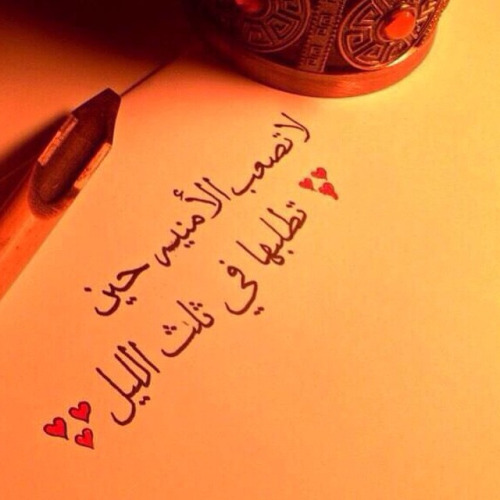 لا تصعب الأمنيه حين
تطلبها في ثلث الليل